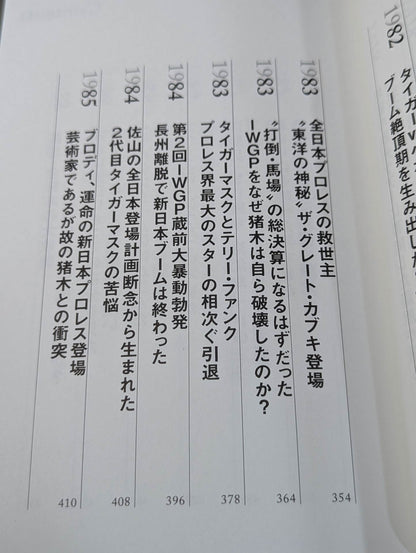 1982
ブーム絶頂期を生み出し
1983
全日本プロレスの救世主
〝東洋の神秘〟ザ・グレート・カブキ登場
354
1983
〝打倒・馬場〟の総決算になるはずだった
IWGPをなぜ猪木は自ら破壊したのか？
364
1983
タイガーマスクとテリー・ファンク
プロレス界最大のスターの相次ぐ引退
378
1984
第2回IWGP蔵前大暴動勃発
長州離脱で新日本ブームは終わった
396
1984
佐山の全日本登場計画断念から生まれた
2代目タイガーマスクの苦悩
408
1985
ブロディ、運命の新日本プロレス登場
芸術家であるが故の猪木との衝突
410